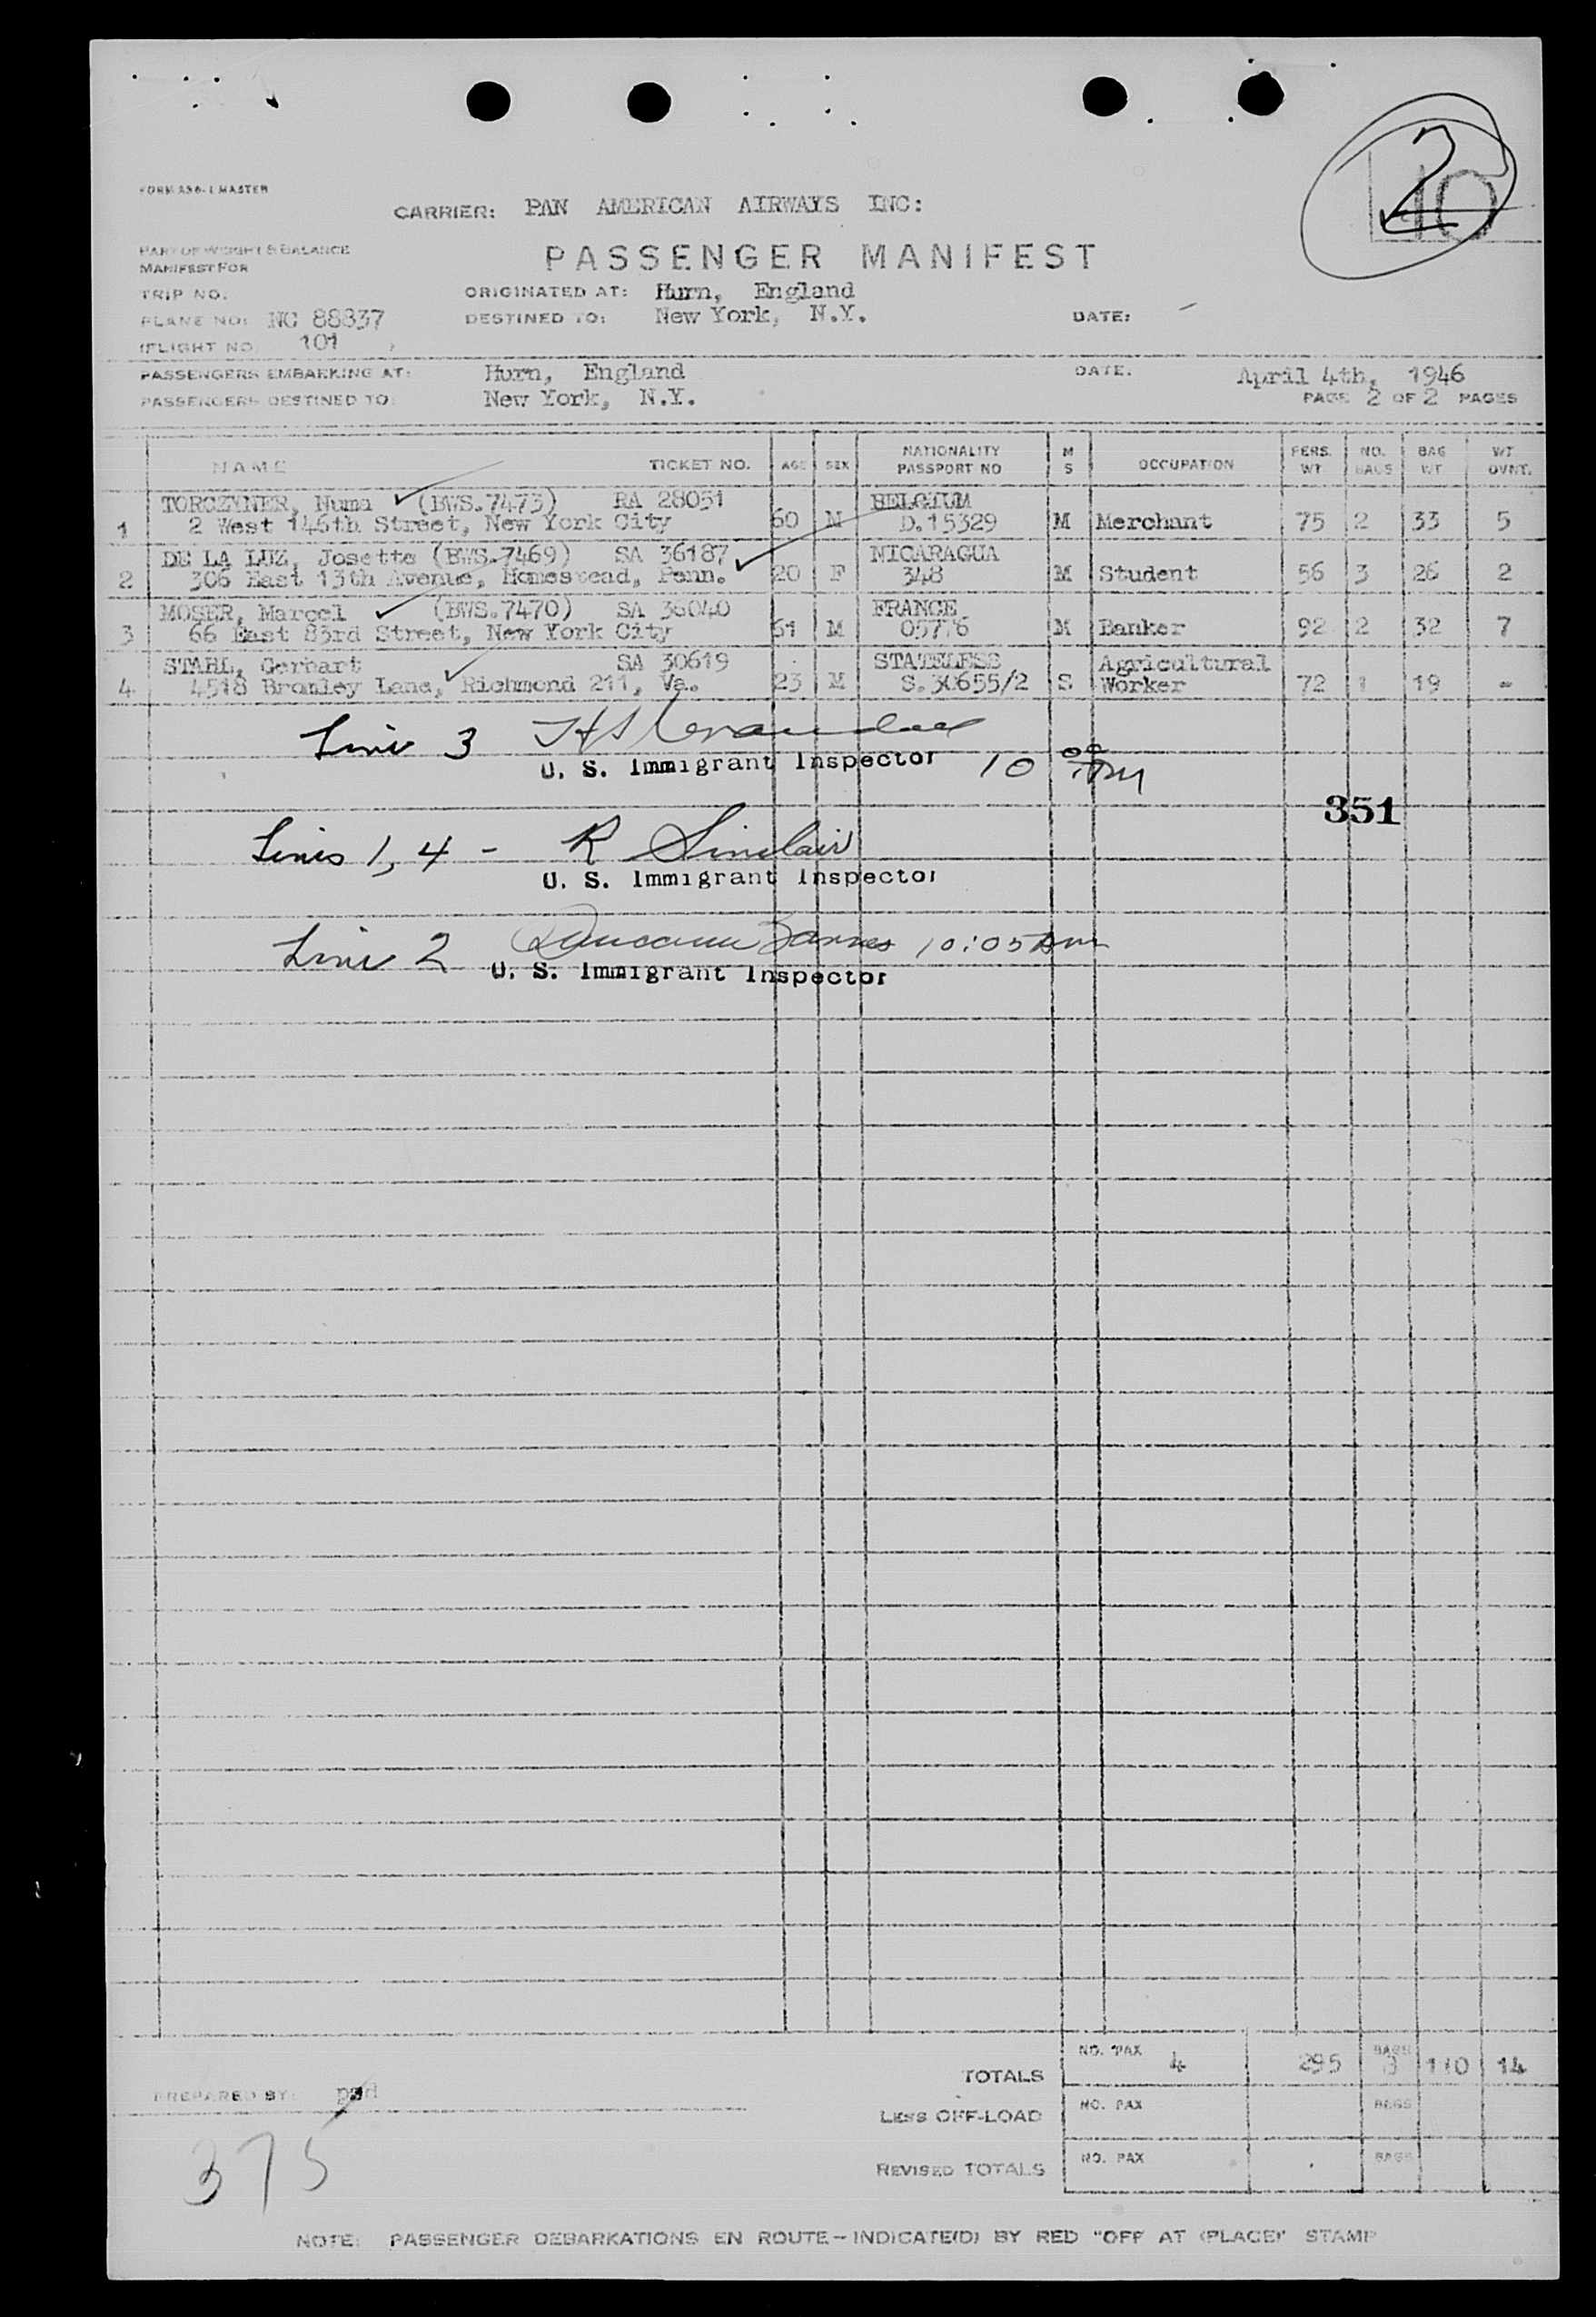 2
40
FORM A86-1 MASTER
CARRIER: PAN AMERICAN AIRWAYS INC:
PART OF WEIGHT & BALANCE
MANIFEST FOR
PASSENGER MANIFEST
TRIP NO.
ORIGINATED AT: Hurn, England
PLANE NO: NC 88837
DESTINED TO: New York, N.Y.
DATE:
FLIGHT NO 101
PASSENGERS EMBARKING AT: Hurn, England
DATE. April 4th, 1946
PASSENGERS DESTINED TO: New York, N.Y.
PAGE 2 OF 2 PAGES
NAME TICKET NO. AGE SEX NATIONALITY PASSPORT NO M S OCCUPATION PERS. WT NO. BAGS BAG WT WT OVNT.
TORCZYNER, Numa (BWS.7473) RA 28051 BELGIUM
1 2 West 146th Street, New York City 60 M D.15329 M Merchant 75 2 33 5
DE LA LUZ, Josette (BWS.7469) SA 36187 NICARAGUA
2 306 East 13th Avenue, Homestead, Penn. 20 F 348 M Student 56 3 26 2
MOSER, Marcel (BWS.7470) SA 36040 FRANCE
3 66 East 83rd Street, New York City 61 M 05776 M Banker 92 2 32 7
STAHL, Gerhart SA 30619 STATELESS Agricultural
4 4518 Bromley Lane, Richmond 211, Va. 23 M S.30655/2 S Worker 72 1 19 -
Line 3
U. S. Immigrant Inspector 10
351
Lines 1, 4 - R Sinclair
U. S. Immigrant Inspector
Line 2 10:05 Am
U. S. Immigrant Inspector
TOTALS NO. PAX 4 295 BAGS 8 110 14
PREPARED BY:
LESS OFF-LOAD NO. PAX BAGS
375
REVISED TOTALS NO. PAX BAGS
NOTE: PASSENGER DEBARKATIONS EN ROUTE - INDICATE(D) BY RED "OFF AT (PLACE)" STAMP